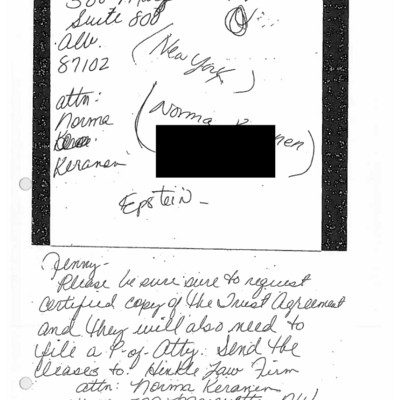 Suite 800
Alb.
87102
(New York)
attn:
Norma
Keranen
(Norma
nen)
Epstein -
Jenny-
Please be sure sure to request
certified copy of the Trust Agreement
and they will also need to
file a P-of-Atty. Send the
leases to: Hinkle Law Firm
attn: Norma Keranen